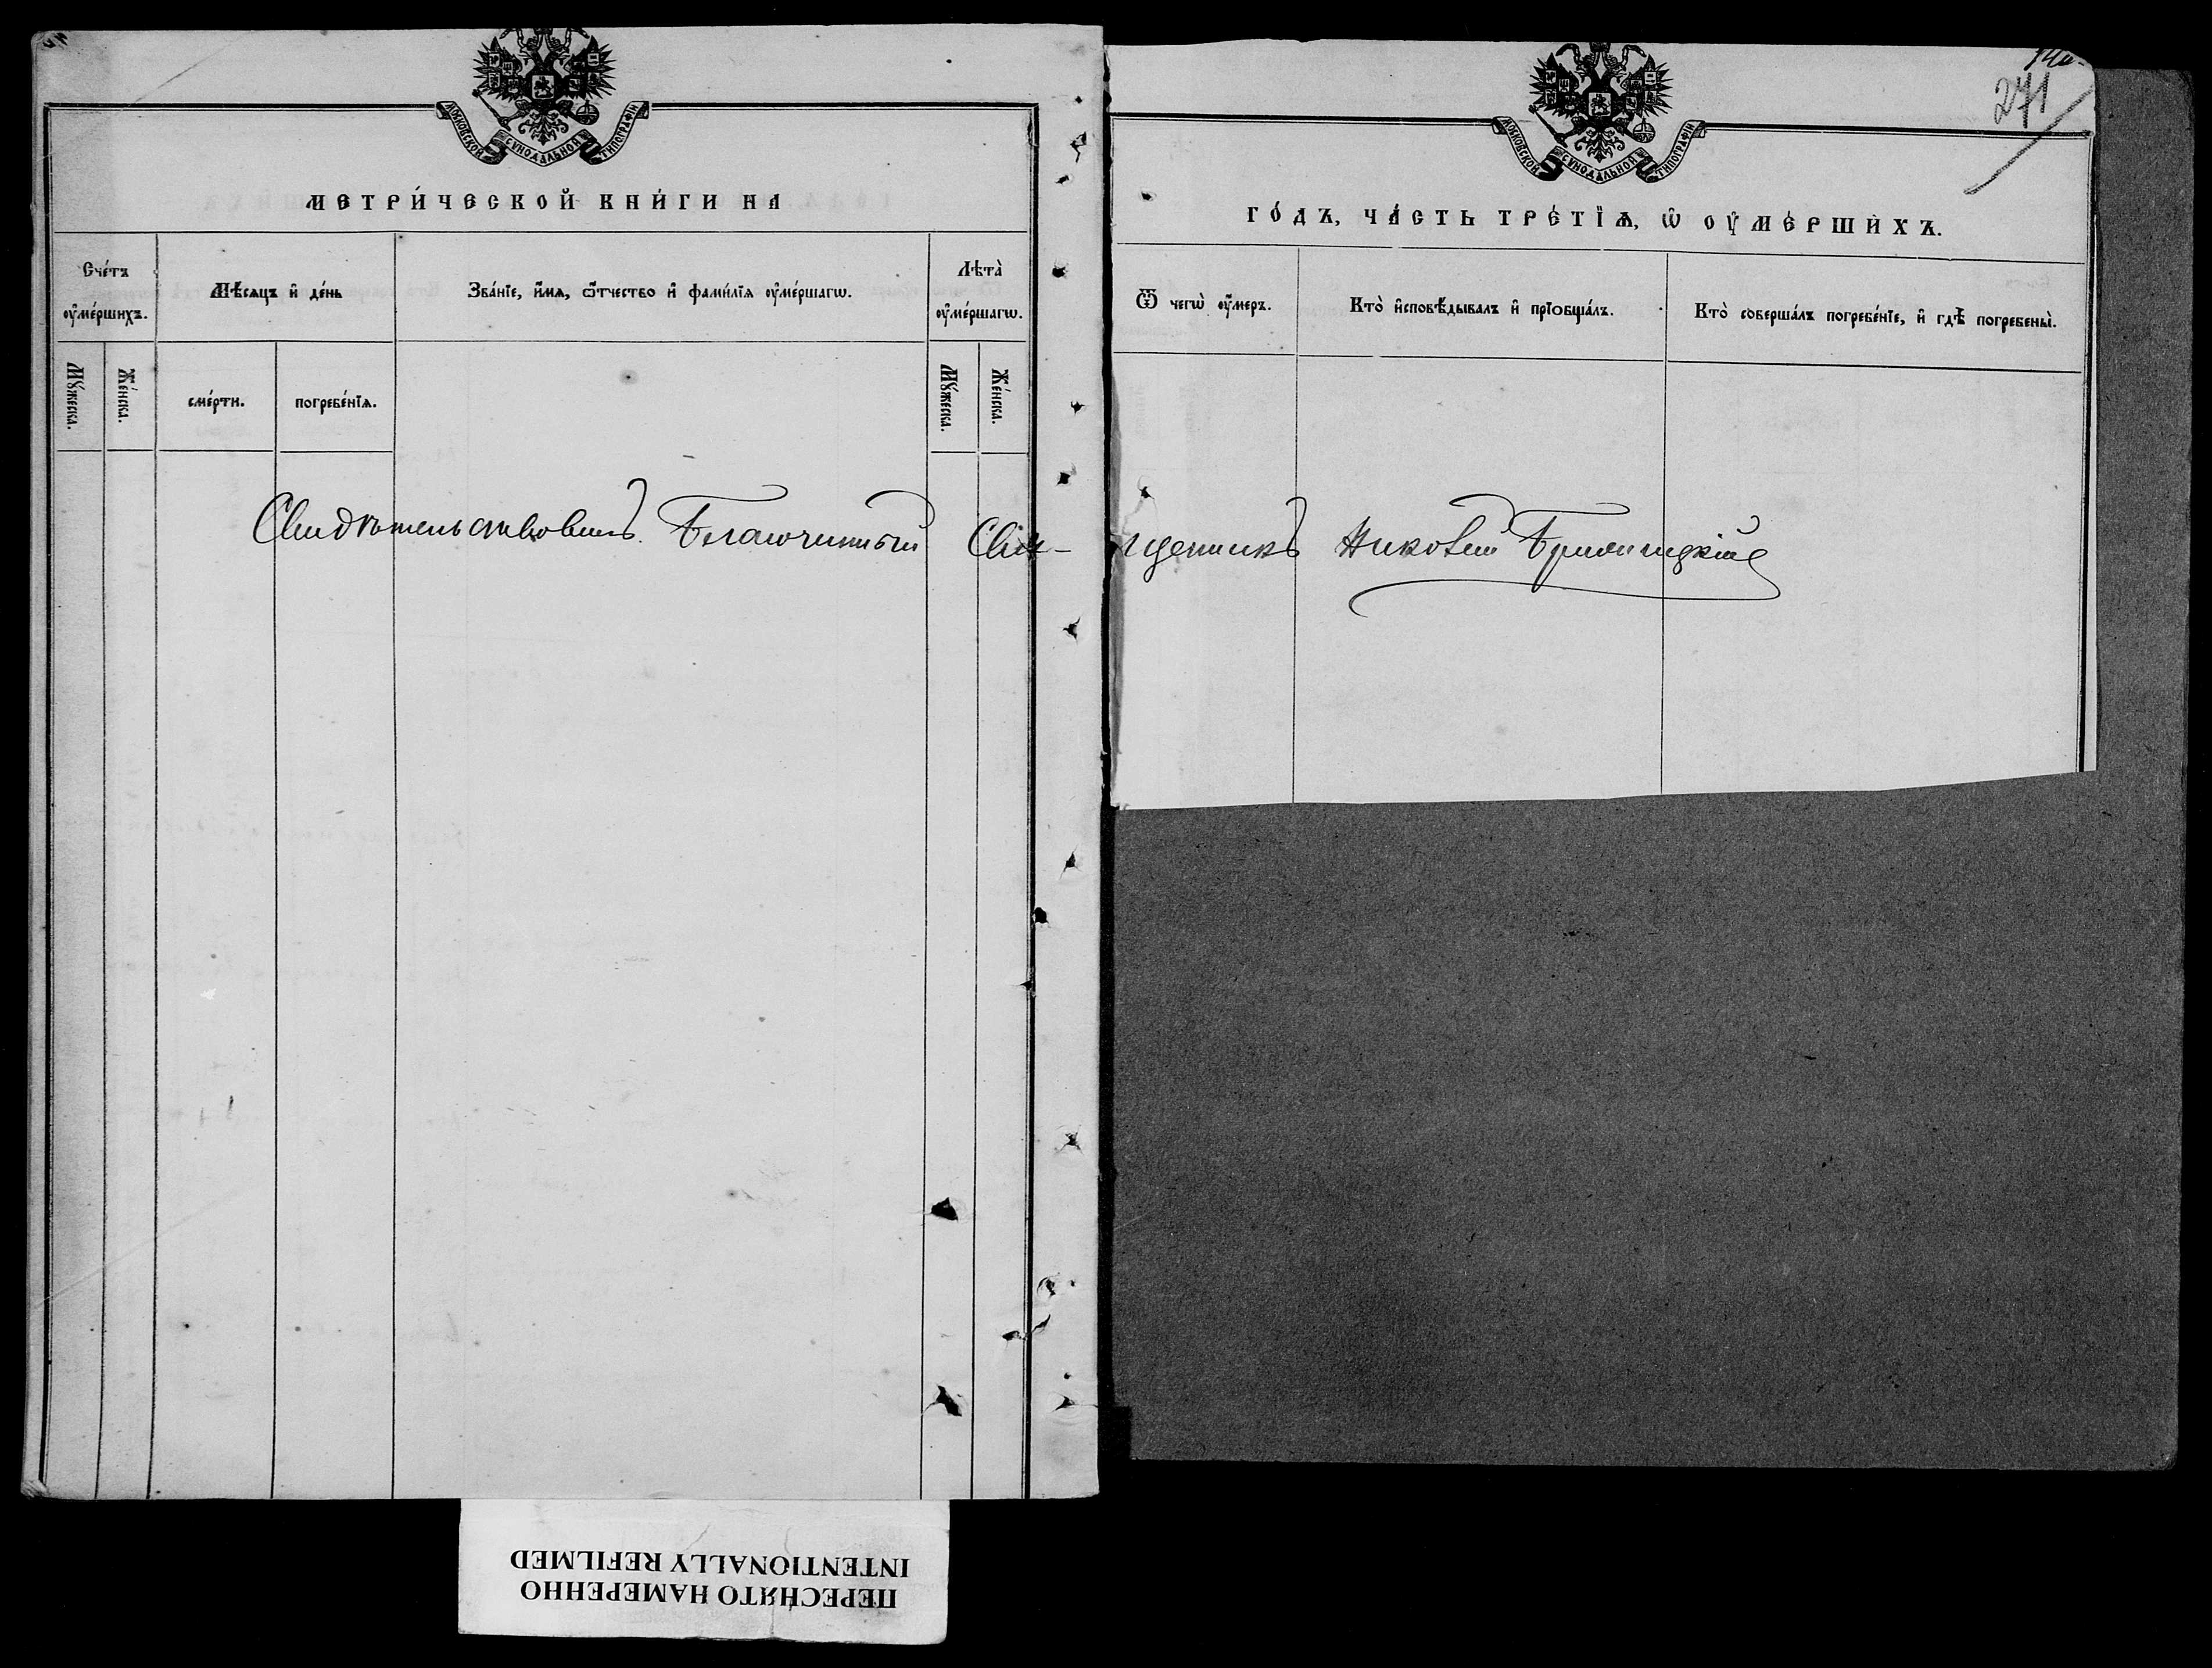 МОСКОВСКОЙ СѴНОДАЛЬНОЙ ТИПОГРАФІИ
МЕТРИ́ЧЕСКОЙ КНИ́ГИ НА
Сче́тъ ᲂу҆ме́ршихъ.
Мѣ́сяцъ и҆ де́нь
Зва́нїе, и҆́мя, ѻ҆́тчество и҆ фами́лїѧ ᲂу҆ме́ршагѡ.
Лѣта̀ ᲂу҆ме́ршагѡ.
Мꙋ́жеска.
Же́нска.
сме́рти.
погребе́нїѧ.
Мꙋ́жеска.
Же́нска.
Свидѣтельствовалъ Благочинный Свя-
МОСКОВСКОЙ СѴНОДАЛЬНОЙ ТИПОГРАФІИ
271
ГО́ДЪ, ЧА́СТЬ ТРЕ́ТЇѦ, Ѡ҆ ОУ҆МЕ́РШИХЪ.
Ѿ чегѡ̀ ᲂу҆́меръ.
Кто̀ и҆сповѣ́дывалъ и҆ прїобща́лъ.
Кто̀ соверша́лъ погребе́нїе, и҆ гдѣ̀ погребены̀.
щенникъ Николай
ПЕРЕСНЯТО НАМЕРЕННО
INTENTIONALLY REFILMED